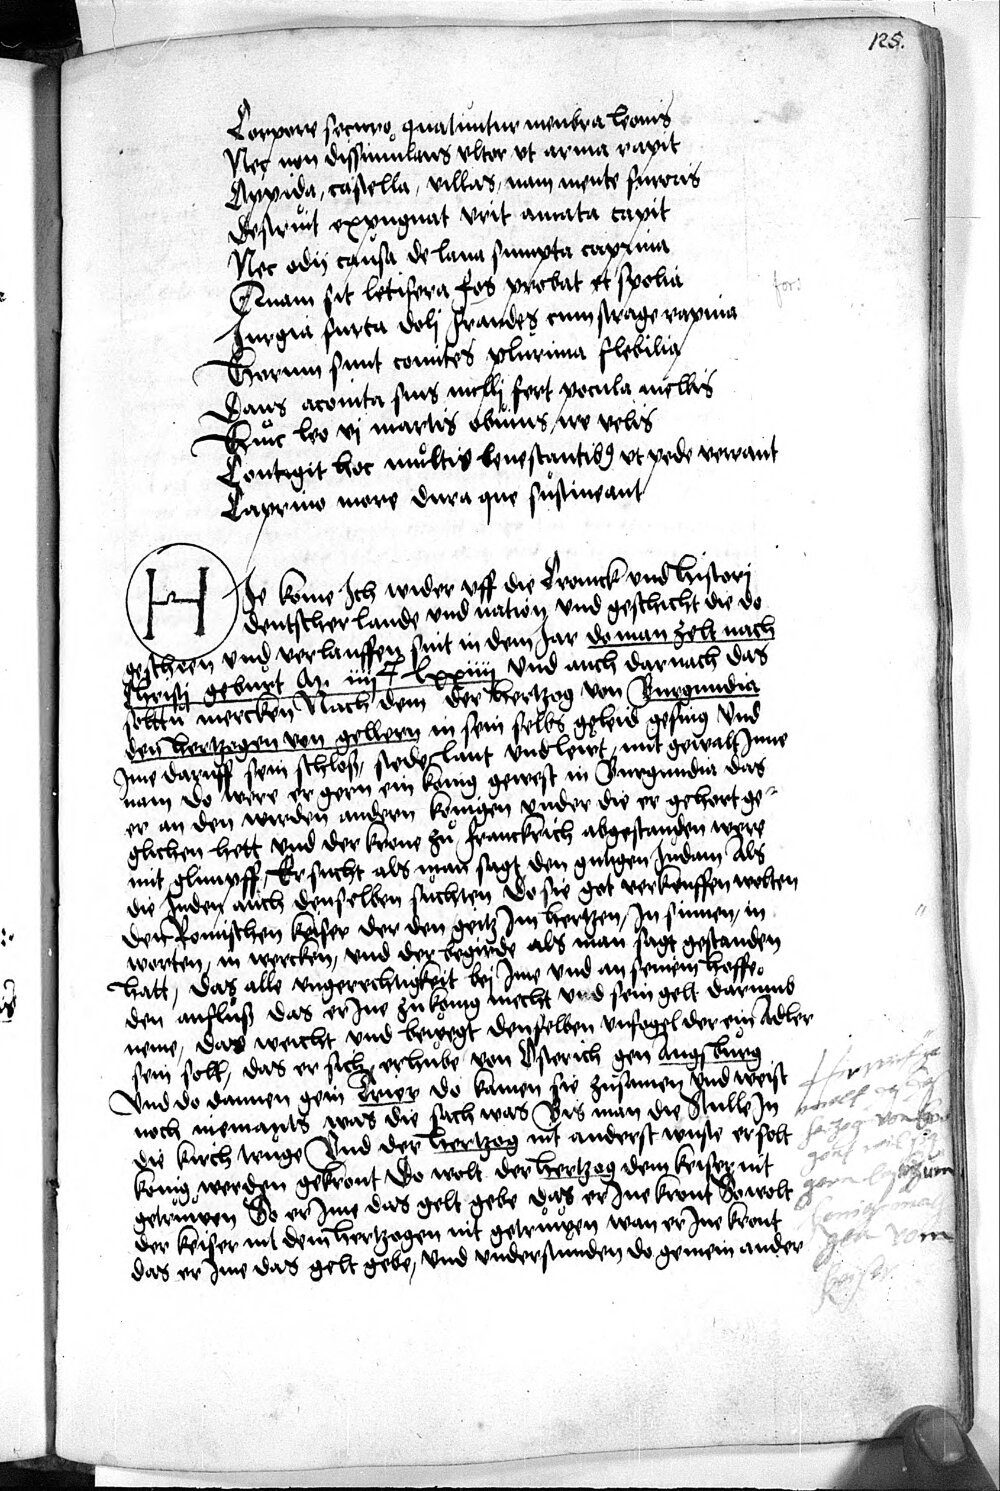 125.
Corpore securo quatiuntur menbra leonis
Nec non dissimulans ultor ut arma rapit
Oppida, castella, villas, nam mente furoris
Destruit expugnat urit amata capit
Nec odij causa de lana sumpta caprina
Quam sit letifera fors probat et spolia
fors
Jurgia furta dolj fraudes cum strage rapina
Horum sunt comites plurima flebilia
Dans aconita suis melli fert pocula mellis
Huic leo vj martis obuius ire velis
Contigit hoc multis ut pede verrant
Caprino more dura que sustineant
HIe kome Jch wider uff die Cronick und histori
deutscher lande und nation und geschicht die do
gescheen und verlauffen sint in dem Jar do man zelt nach
Christj geburt M. iiijC lxxiiij und auch darnach das
solttu mercken Nach dem der hertzog von Burgundia
den hertzogen von gellern in sein selbs geleid gefing und
Jme daruff sein schloß, stede, lant und lewt, mit gewalt Jnne
nam do were er gern ein konig gewest in Burgundia das
er an den wirden andern konigen under die er gehort ge-
glichen hett und der krone zu franckrich abgestanden were
mit glimpff, Er sucht als man sagt den gutigen Judam Als
die Juden auch denselben suchten do sie got verkeuffen wolten
den Romischen keiser der den geitz Jm hertzen, Jn sinnen, in
worten, in wercken, und der begirde als man sagt gestanden
hatt, das alle ungerechtigkeit bej Jme und an seinem hoffe
den anfluß das er Jne zu konig mecht und sein gelt darumb
neme, das weicht und bewegt denselben unfogel der ein Adler
sein solt, das er sich erhube von Osterich gen Augsburg
Und do dannen gein Trier do kamen sie zusamen und weist
noch niemants was die sach was Bis man die Stulle Jn
die kirch truge Und der hertzog nit anderst wuste er solt
konig werden gekront Do wolt der hertzog dem keiser nit
getruwen So er Jme das gelt gebe das er Jne kront So wolt
der keiser nit dem hertzogen nit getruwen wan er Jne kront
das er Jme das gelt gebe, und understunden do gemein ander
hertzog von
gern
zum
konig
vom
keiser